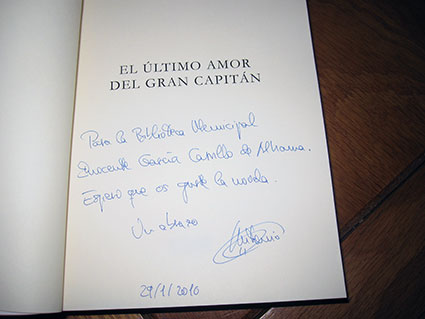 EL ÚLTIMO AMOR
DEL GRAN CAPITÁN
Para la Biblioteca Municipal
Inocente García Carrillo de Alhama.
Espero que os guste la novela.
Un abrazo
29/1/2010